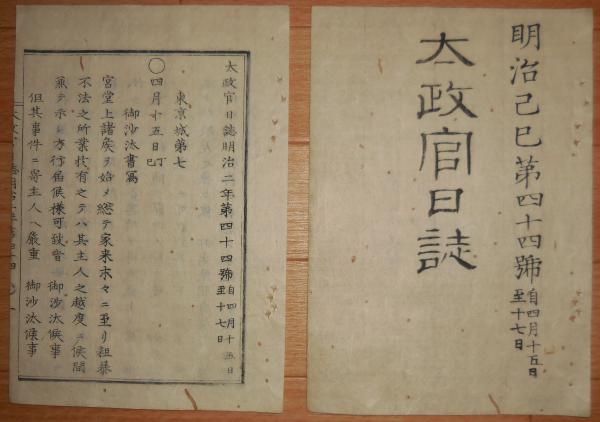 明治己巳第四十四號自四月十五日至十七日
太政官日誌
太政官日誌明治二年第四十四號自四月十五日至十七日
東京城第七
御沙汰書寫
○四月十五日丁巳
宮堂上諸侯ヲ始メ總テ家来末々ニ至リ粗暴
不法之所業技有之テハ其主人之越度ニ候間
兼テ示シ方行屆候樣可致旨 御沙汰候事
但其事件ニ寄主人ヘ嚴重 御沙汰候事